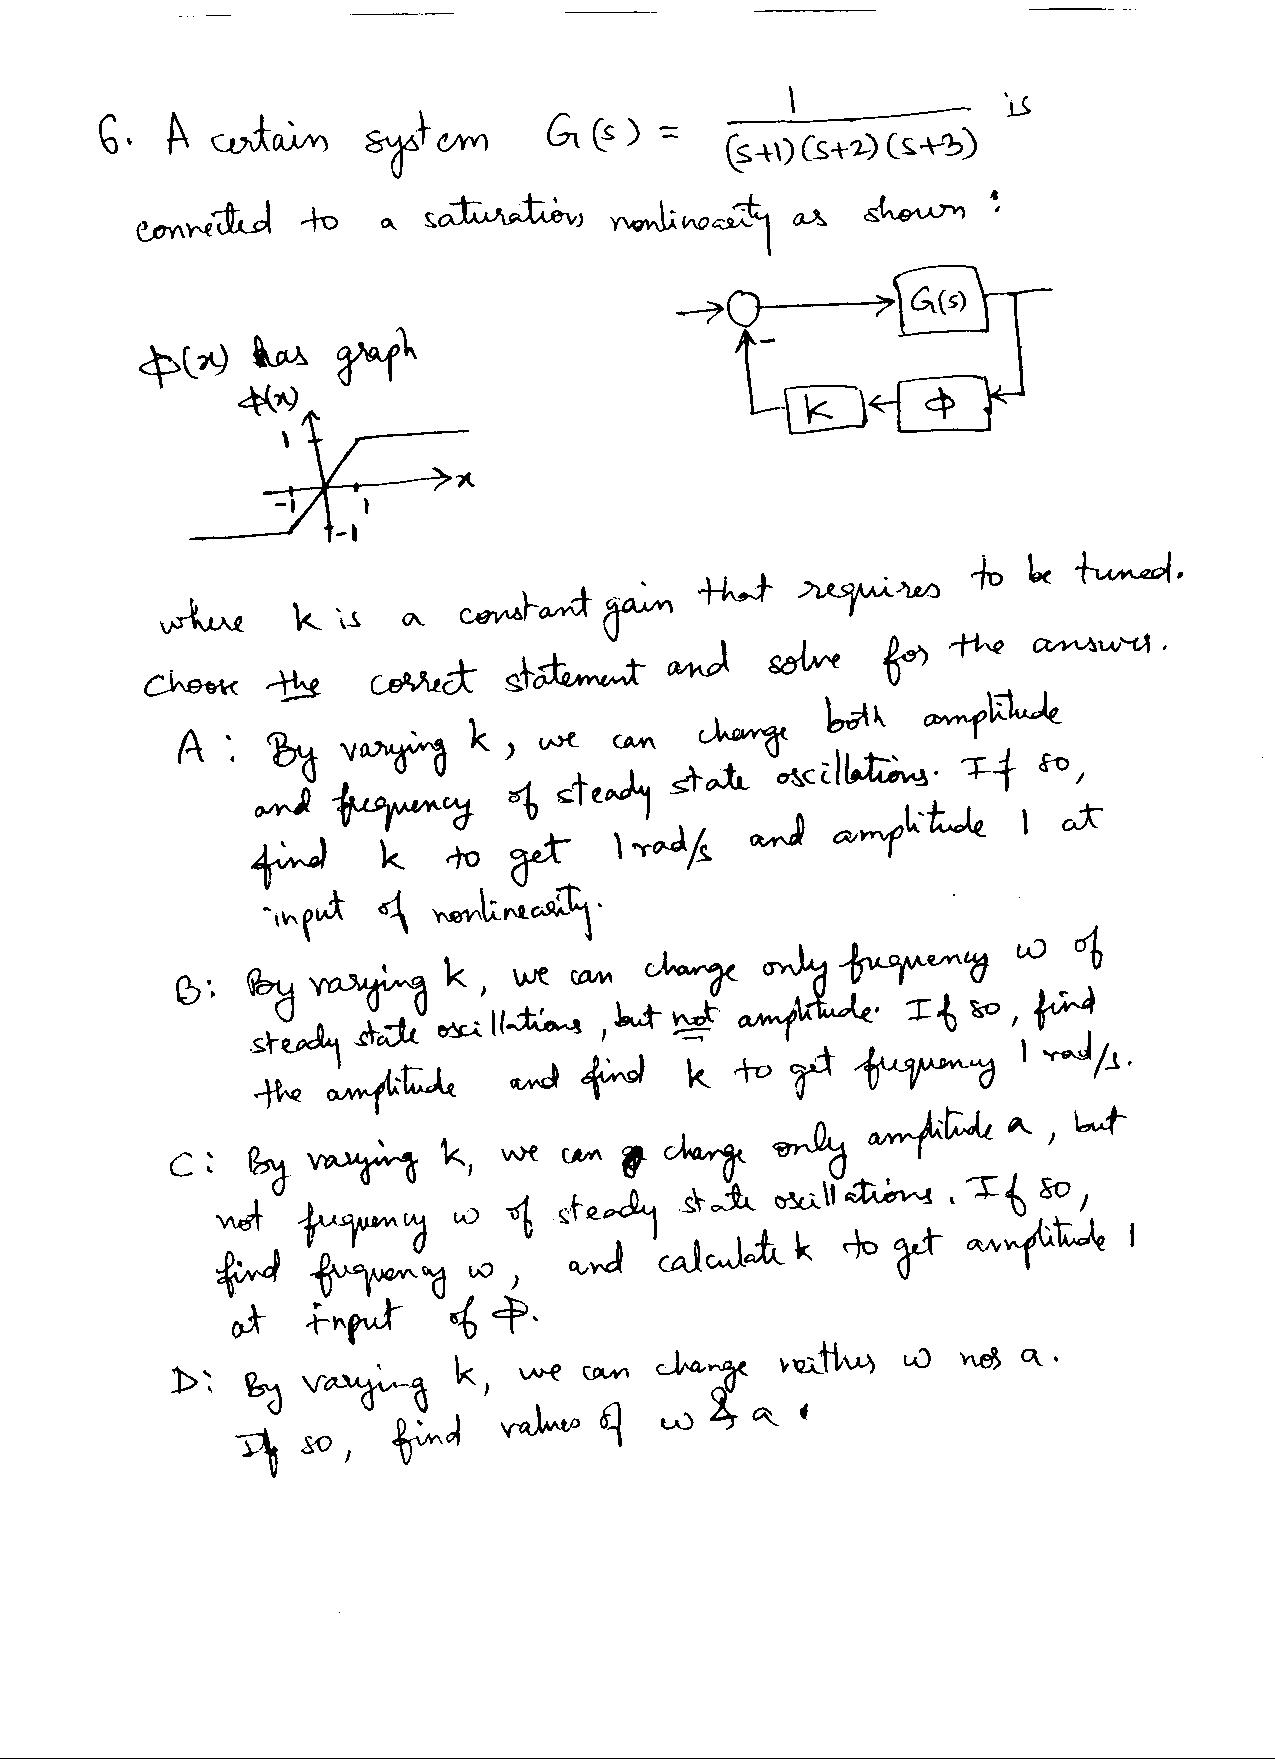 6. A certain system G(s) = 1 / (s+1)(s+2)(s+3) is
connected to a saturation nonlinearity as shown :
G(s)
-
k
ϕ
ϕ(x) has graph
ϕ(x)
1
x
-1
1
-1
where k is a constant gain that requires to be tuned.
Choose the correct statement and solve for the answer.
A: By varying k, we can change both amplitude
and frequency of steady state oscillations. If so,
find k to get 1 rad/s and amplitude 1 at
input of nonlinearity.
B: By varying k, we can change only frequency w of
steady state oscillations, but not amplitude. If so, find
the amplitude and find k to get frequency 1 rad/s.
C: By varying k, we can change only amplitude a, but
not frequency w of steady state oscillations. If so,
find frequency w, and calculate k to get amplitude 1
at input of ϕ.
D: By varying k, we can change neither w nor a.
If so, find values of w & a.